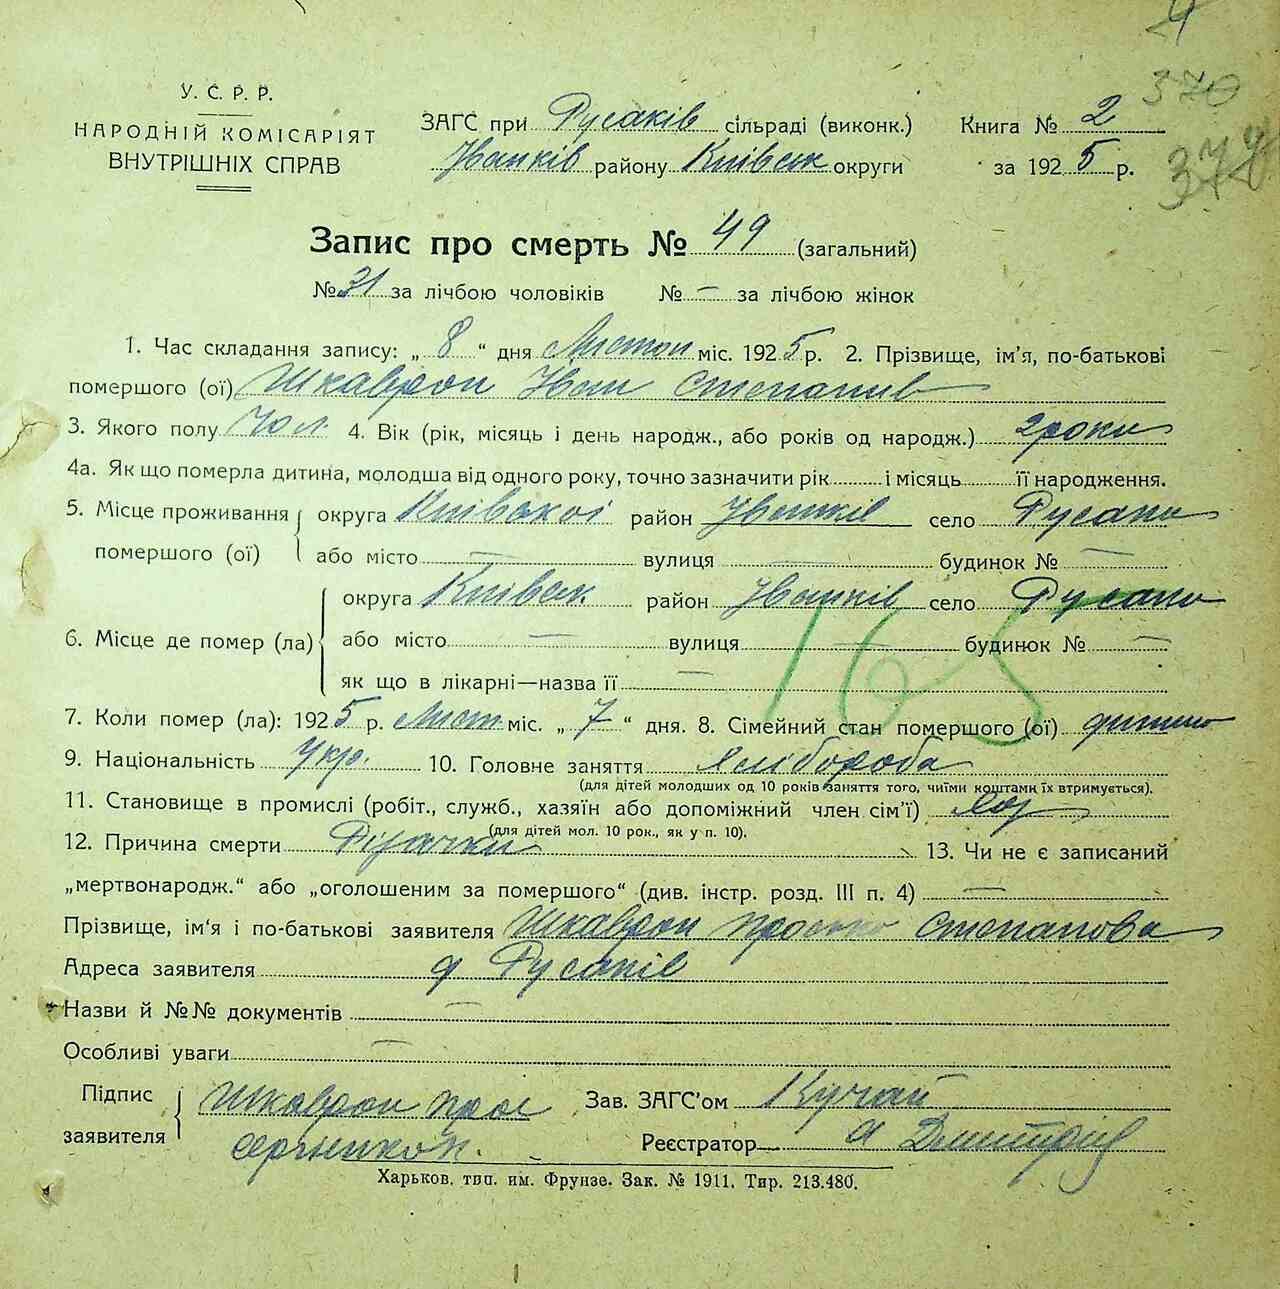 4
370
378
У. С. Р. Р.
НАРОДНІЙ КОМІСАРІЯТ
ВНУТРІШНІХ СПРАВ
ЗАГС при Русаків сільраді (виконк.) Книга № 2
Іванків району Київськ округи за 1925 р.
Запис про смерть № 49 (загальний)
№ 31 за лічбою чоловіків № — за лічбою жінок
1. Час складання запису: „ 8 “ дня Листоп міс. 1925 р. 2. Прізвище, ім’я, по-батькові
помершого (ої) Шкаврон Іван Степанив
3. Якого полу Чол. 4. Вік (рік, місяць і день народж., або років од народж.) 2 роки
4а. Як що померла дитина, молодша від одного року, точно зазначити рік і місяць її народження.
5. Місце проживання округа Київської район Іванків село Русаки
помершого (ої) або місто — вулиця — будинок № —
округа Київськ район Іванків село Русаки
6. Місце де помер (ла) або місто — вулиця — будинок № —
як що в лікарні—назва її —
165
7. Коли помер (ла): 1925 р. Лист міс. „ 7 “ дня. 8. Сімейний стан помершого (ої) дитина
9. Національність Укр. 10. Головне заняття Хлібороба
(для дітей молодших од 10 років заняття того, чиїми коштами їх втримується).
11. Становище в промислі (робіт., служб., хазяїн або допоміжний член сім’ї) Хаз
(для дітей мол. 10 рок., як у п. 10).
12. Причина смерти Різачки 13. Чи не є записаний
„мертвонародж.“ або „оголошеним за помершого“ (див. інстр. розд. III п. 4) —
Прізвище, ім‘я і по-батькові заявителя Шкаврон Степанова
Адреса заявителя Русаків
Назви й №№ документів —
Особливі уваги —
Підпис Шкаврон Зав. ЗАГС’ом Кучай
заявителя Реєстратор
Харьков. тип. им. Фрунзе. Зак. № 1911. Тир. 213.480.